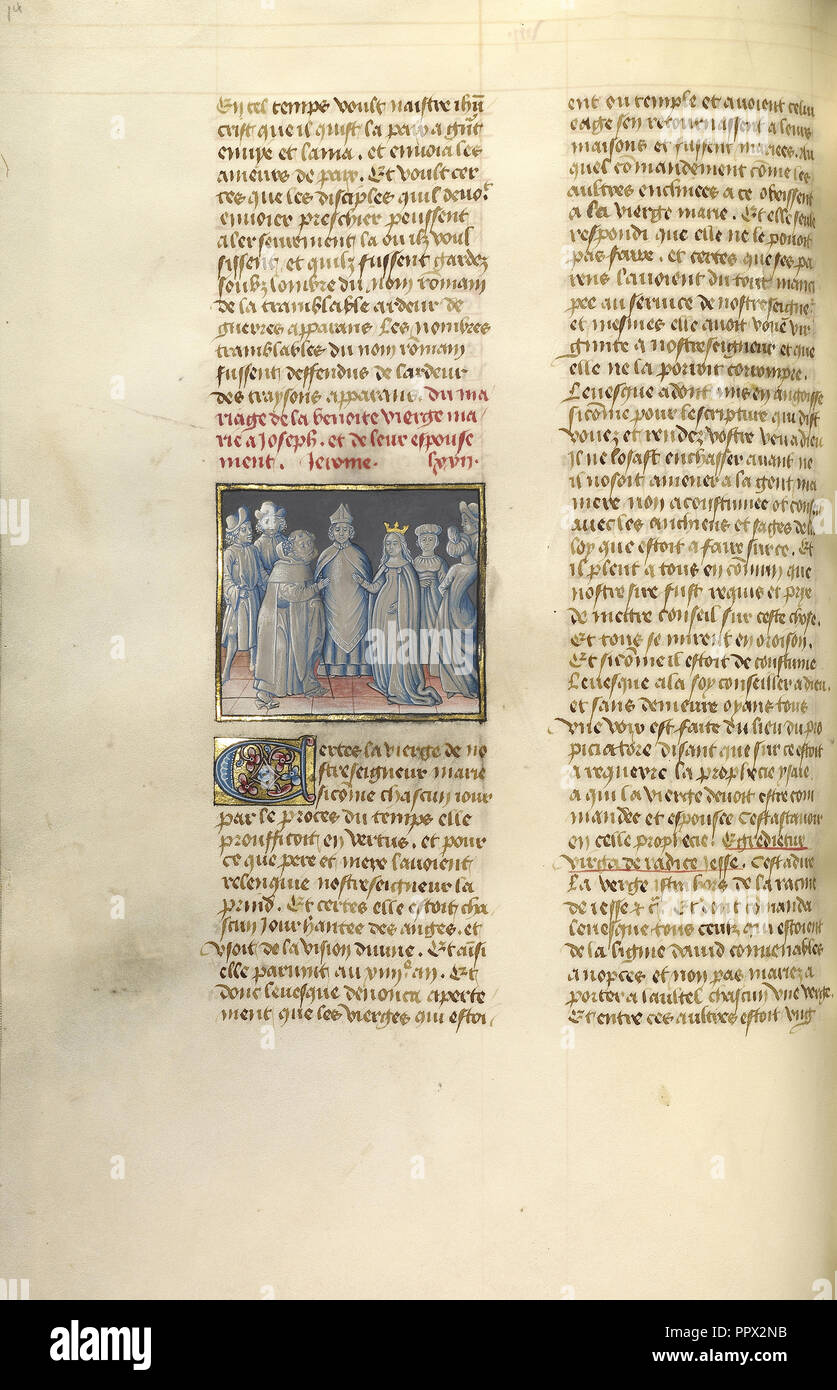 En cel temps voult naistre ihũ
crist que il quist la paix a gñt
empe et lama . et envoia les
ameurs de paix . Et voult cer
tes que les disciples quil devoᵗ
envoier preschier peussent
aler seurement la ou ilz voul
sissent et quilz fussent gardez
soubz lombre du nom rõmain
de la tramblable ardeur de
guerres apparans Les nombres
tramblables du nom rõmain
fussent deffendus de lardeur
des traysons apparans . du ma
riage de la benoite vierge ma
rie a Joseph . et de leur espouse
ment . Jerome .
Certes la vierge de no
streseigneur marie
sicõme chascun iour
par le proces du temps elle
prouffitoit en vertus . et pour
ce que pere et mere lavoient
relenquie nostreseigneur la
prind . Et certes elle estoit cha
scun Jour hantee des anges . et
usoit de la vision divine . Et aĩsi
elle parvint au an . Et
donc levesque denonca aperte
ment que les vierges qui estoi
ent ou temple et avoient celui
eage sen retournassent a leurs
maisons et fussent mariees . Au
quel cõmandement cõme les
aultres enclinees a ce obeissent
a la vierge marie . Et elle seule
respondi que elle ne le povoit
pas faire . et certes que ses pa
rens lavoient du tout man
pee au service de nostreseigneᵗ
et mesmes elle avoit voué vir
ginite a nostreseigneur et que
elle ne la porroit corrompre .
Levesque adont mis en angoisse
sicõme pour lescripture qui dist
vouez et rendez vostre veu a dieu
Il ne losast enchasser avant ne
il nosoit amener a la gent ma
niere non acoustumee ot cons
avec les anchiens et sages de la
loy que estoit a faire sur ce . Et
il pleut a tous en cõmun que
nostre sire fust requis et prye
de mettre conseil sur ceste chose .
Et tous se mirent en oroison .
Et sicõme il estoit de coustume
Levesque ala soy conseiller a dieu .
et sans demeure oyans tous
une voix est faite du lieu du pro
piciatore disant que sur ce estoit
a requerre la prophecie ysaie
a qui la vierge devoit estre com
mandee et espousee Cestassavoir
en celle prophecie . Egredietur
virga de radice iesse . Cest a dire
La verge istra hors de la racine
de iesse &c̃ . Et dont cõmanda
levesque tous ceulz qui estoient
de la lignie david convenables
a nopces et non pas mariez a
porter a lautel chascun une verge
Et entre ces aultres estoit ung
alamy
Image ID: PPX2NB
www.alamy.com